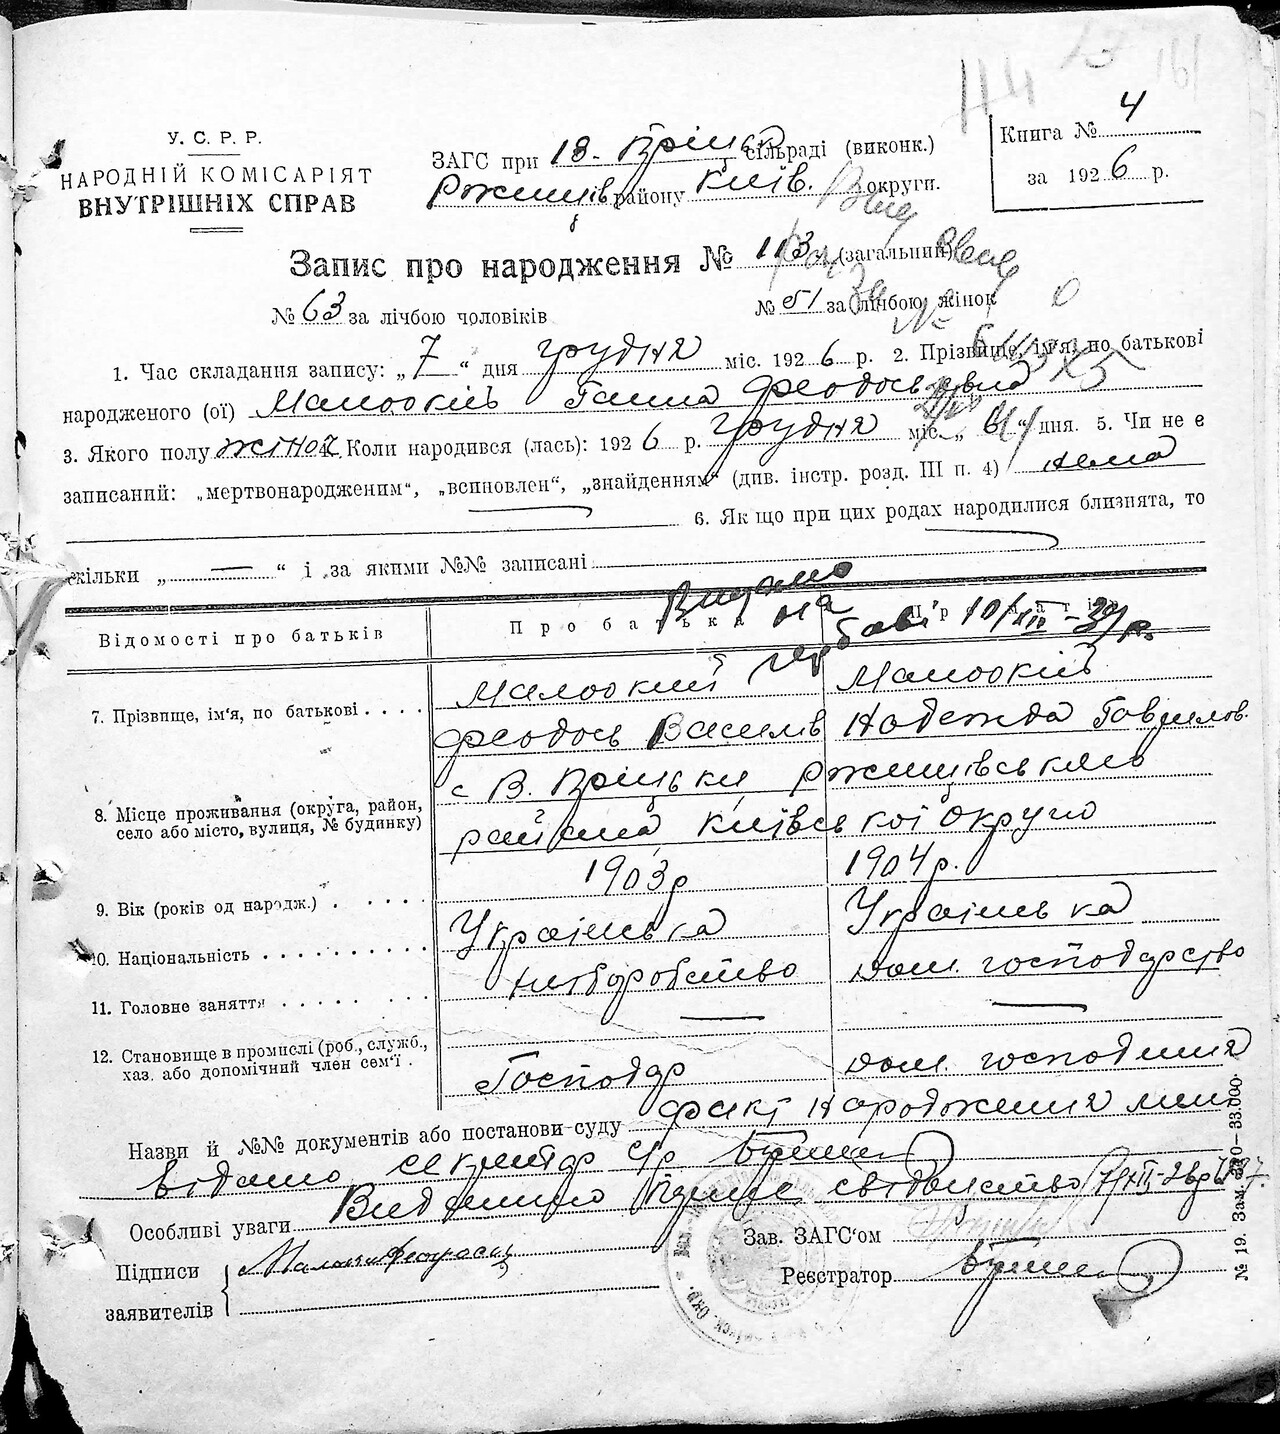 44 13 161
У. С. Р. Р.
НАРОДНІЙ КОМІСАРІЯТ
ВНУТРІШНІХ СПРАВ
ЗАГС при сільраді (виконк.)
Ржищів району Київ. округи.
Книга № 4
за 1926 р.
Запис про народження № 113 (загальний)
№ 63 за лічбою чоловіків № 51 за лічбою жінок
1. Час складання запису: „ 7 “ дня грудня міс. 1926 р. 2. Прізвище, ім'я, по батькові
народженого (ої) Малоокий Ганна Феодосьівна
3. Якого полу жіноч. Коли народився (лась): 1926 р. грудня міс. „ “ дня. 5. Чи не є
записаний: „мертвонародженим“, „всиновлен“, „знайденням“ (див. інстр. розд. III п. 4) нема
6. Якщо при цих родах народилися близнята, то
скільки „ — “ і за якими №№ записані
Видано на 10/XII-39 р.
Відомості про батьків Про батька Про матір
7. Прізвище, ім'я, по батькові . . . . Малоокий Феодось Василів Малоокий Надежда Гаврилов.
8. Місце проживання (округа, район,
село або місто, вулиця, № будинку)
с В. Пріцьки Ржищівського
района Київської округи
9. Вік (років од народж.) . . . . . 1903 р 1904 р.
10. Національність . . . . . . . . . . Українська Українська
11. Головне заняття . . . . . . . . хліборобство дом. господарство
12. Становище в промислі (роб., служб.,
хаз. або допомічний член сем'ї .
Господар дом. господиня
Назви й №№ документів або постанови суду факт народження мені
відомо секретар с/р
Особливі уваги Видано свідоцтво
Підписи
заявителів
Зав. ЗАГС'ом
Реєстратор
№ 19. Зам. 320—33.000.